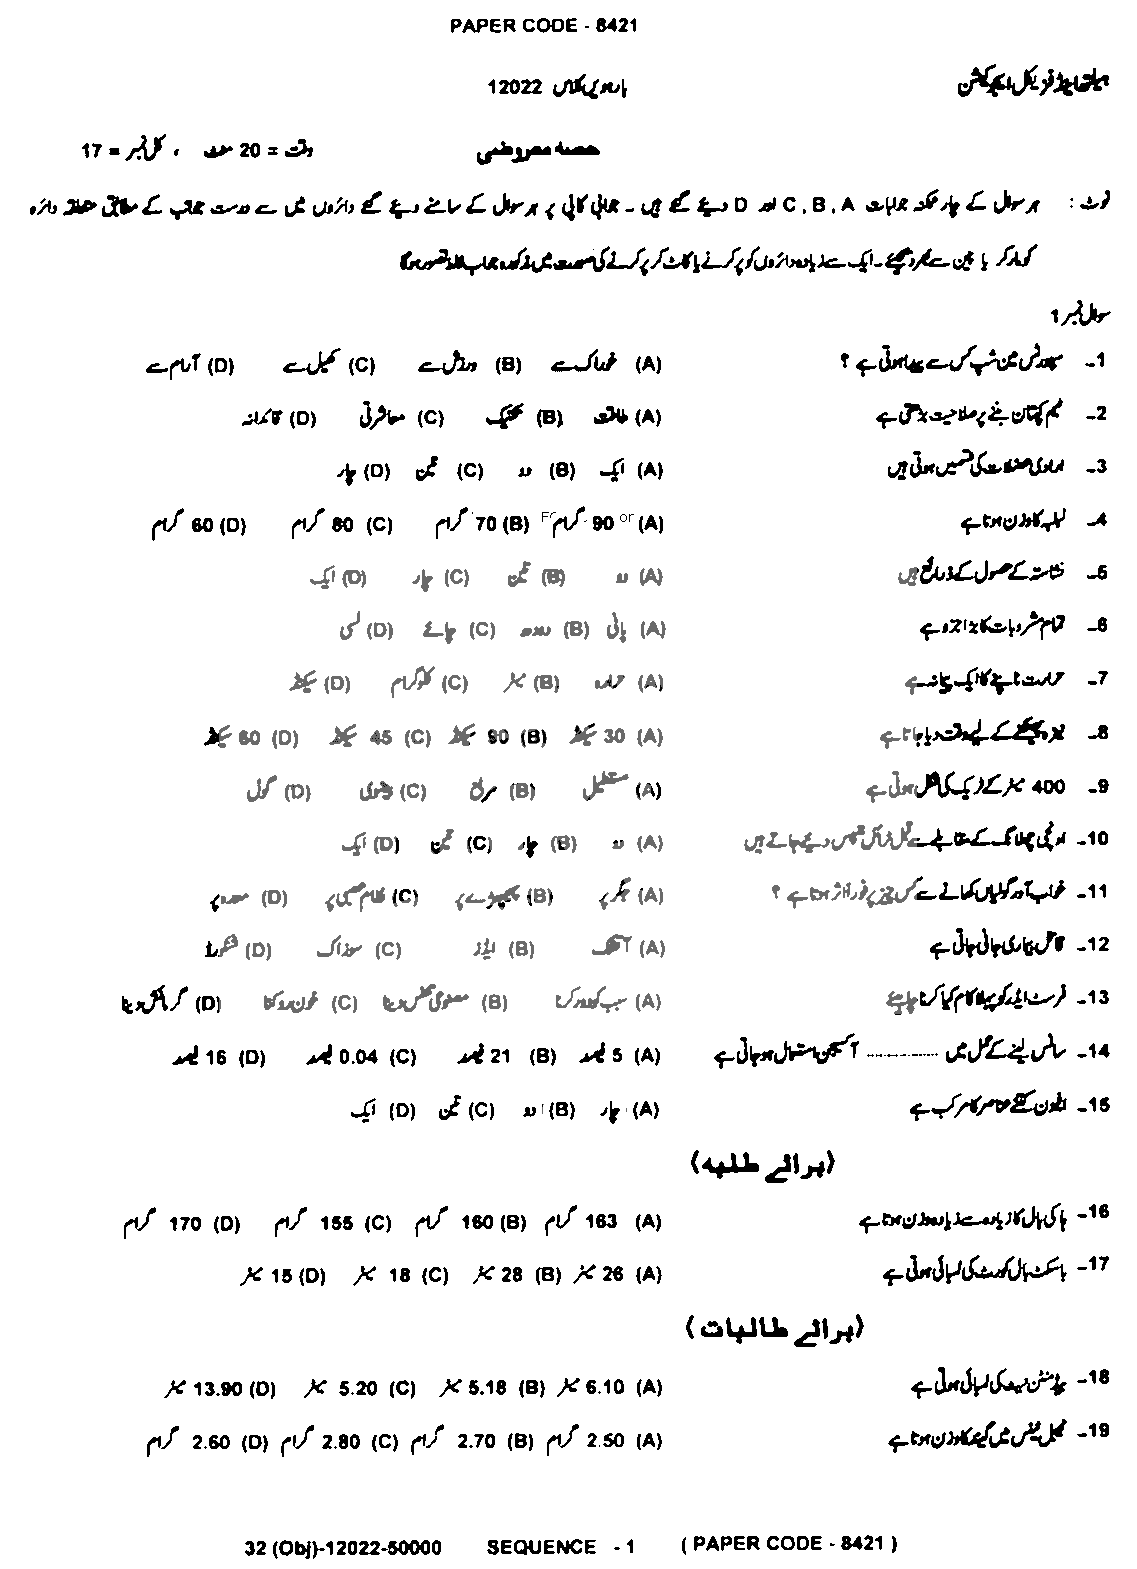 PAPER CODE - 8421
ہیلتھ اینڈ فزیکل ایجوکیشن
بارہویں کلاس 12022
حصہ معروضی
وقت = 20 منٹ ، کل نمبر = 17
نوٹ : ہر سوال کے چار ممکنہ جوابات C , B , A اور D دیے گئے ہیں ۔ جوابی کاپی پر ہر سوال کے سامنے دیے گئے دائروں میں سے درست جواب کے مطابق متعلقہ دائرہ
کو مارکر یا پین سے بھر دیجئے۔ ایک سے زیادہ دائروں کو پر کرنے یا کاٹ کر پر کرنے کی صورت میں مذکورہ جواب غلط تصور ہوگا
سوال نمبر 1
1۔ سپورٹس مین شپ کس سے پیدا ہوتی ہے ؟ (A) خوراک سے (B) ورزش سے (C) کھیل سے (D) آرام سے
2۔ ٹیم کپتان بننے پر صلاحیت بڑھتی ہے (A) طاقت (B) تکنیک (C) معاشرتی (D) قائدانہ
3۔ ارادی عضلات کی قسمیں ہوتی ہیں (A) ایک (B) دو (C) تین (D) چار
4۔ لبلبہ کا وزن ہوتا ہے (A) 90 گرام (B) 70 گرام (C) 80 گرام (D) 60 گرام
5۔ نشاستہ کے حصول کے ذرائع ہیں (A) دو (B) تین (C) چار (D) ایک
6۔ تمام مشروبات کا بڑا جزو ہے (A) پانی (B) دودھ (C) چائے (D) لسی
7۔ حرارت ناپنے کا ایک پیمانہ ہے (A) حرارہ (B) میٹر (C) کلوگرام (D) سیکنڈ
8۔ نیزہ پھینکنے کے لیے وقت دیا جاتا ہے (A) 30 سیکنڈ (B) 90 سیکنڈ (C) 45 سیکنڈ (D) 60 سیکنڈ
9۔ 400 میٹر کے ٹریک کی شکل ہوتی ہے (A) مستطیل (B) مربع (C) بیضوی (D) گول
10۔ اونچی چھلانگ کے مقابلے سے قبل ٹرائل چانس دیے جاتے ہیں (A) دو (B) چار (C) تین (D) ایک
11۔ خواب آور گولیاں کھانے سے کس چیز پر فوراً اثر ہوتا ہے ؟ (A) جگر پر (B) پھیپھڑے پر (C) نظام عصبی پر (D) معدہ پر
12۔ قاتل بیماری جانی جاتی ہے (A) آتشک (B) ایڈز (C) سوزاک (D)
13۔ فرسٹ ایڈر کو پہلا کام کیا کرنا چاہیے (A) سبب کو دور کرنا (B) مصنوعی تنفس دینا (C) خون روکنا (D) گرمائش دینا
14۔ سانس لینے کے عمل میں ............... آکسیجن استعمال ہو جاتی ہے (A) 5 فیصد (B) 21 فیصد (C) 0.04 فیصد (D) 16 فیصد
15۔ افیون کتنے عناصر کا مرکب ہے (A) چار (B) دو (C) تین (D) ایک
(برائے طلبہ)
16۔ ہاکی بال کا زیادہ سے زیادہ وزن ہوتا ہے (A) 163 گرام (B) 160 گرام (C) 155 گرام (D) 170 گرام
17۔ باسکٹ بال کورٹ کی لمبائی ہوتی ہے (A) 26 میٹر (B) 28 میٹر (C) 18 میٹر (D) 15 میٹر
(برائے طالبات)
18۔ بیڈمنٹن نیٹ کی لمبائی ہوتی ہے (A) 6.10 میٹر (B) 5.18 میٹر (C) 5.20 میٹر (D) 13.90 میٹر
19۔ ٹیبل ٹینس میں گیند کا وزن ہوتا ہے (A) 2.50 گرام (B) 2.70 گرام (C) 2.80 گرام (D) 2.60 گرام
32 (Obj)-12022-50000 SEQUENCE - 1 ( PAPER CODE - 8421 )